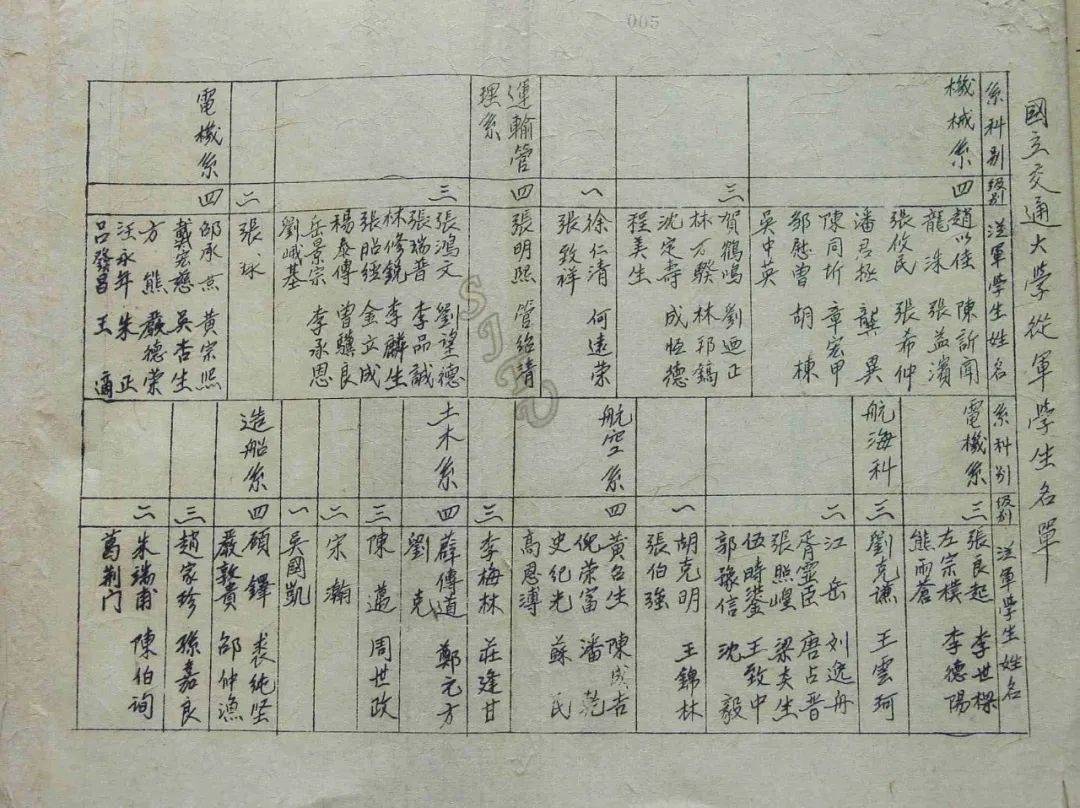 005
國立交通大學從軍學生名單
系科别
級别
從軍學生姓名
機械系
四
趙以佳 陳訢聞
龍洙 張益濱
張攸民 張希仲
潘君拯 龔異
陳同圻 章宏甲
鄒慰曾 胡棟
吳中英
三
賀鶴鳴 劉廼正
林万騤 林邦鎬
沈定壽 成恒德
程美生
一
徐仁清 何遠榮
張致祥
運輸管理系
四
張明熙 管紹清
三
張鴻文 劉望德
張瑞普 李品誠
林修銳 李麟生
張昭經 金立成
楊泰傳 曾驥良
岳景宗 李承恩
劉基
二
張球
電機系
四
邹承京 黄宗熙
戴宏慈 吳杏生
方熊 嚴德榮
汪永年 朱正
吕發昌 王適
系科别
級别
從軍學生姓名
電機系
三
張良起 李世樑
左宗樸 李德陽
熊而蒼
航海科
三
劉克謙 王雲珂
二
江岳 刘逸舟
胥靈臣 唐占晋
張照煌 梁炎生
伍時 王致中
郭豫信 沈毅
一
胡克明 王錦林
張伯强
航空系
四
黄名生 陳成吉
倪荣富 潘
史纪光 蘇民
高恩溥
三
李梅林 莊逢甘
土木系
四
薛傳道 鄭元方
劉克
三
陳邁 周世政
二
宋瀚
一
吳國凱
造船系
四
碩鐸 裘純坚
嚴敦贵 邵仲漁
三
趙家珍 孫嘉良
二
朱瑞甫 陳伯詢
葛荆门
SJTU